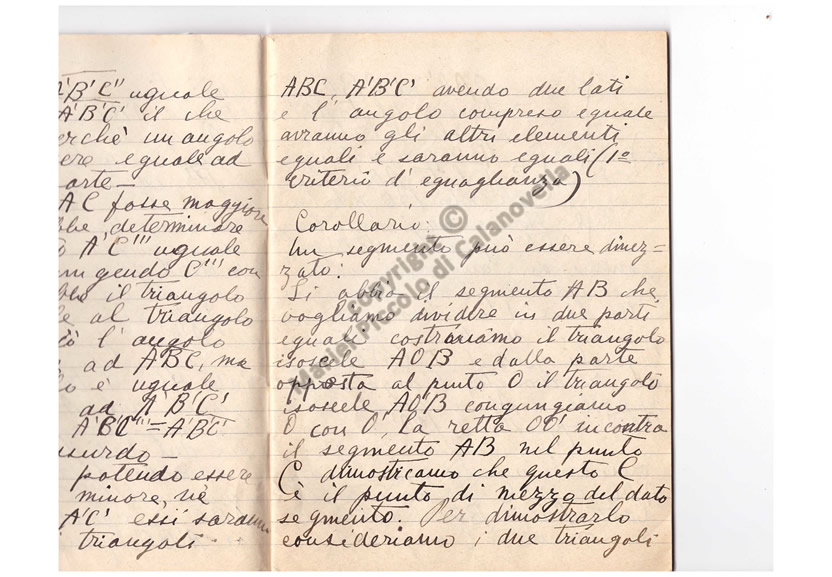 A'B'C'' uguale
A'B'C' il che
erchè un angolo
ere eguale ad
arte—
AC fosse maggiore
bbe, determinare
A'C''' uguale
ngendo C''' con
il triangolo
al triangolo
l'angolo
ad ABC, ma
è uguale
ad A'B'C'
A'BC'''=A'BC'
surdo—
potendo essere
minore, nè
A'C' essi saranno
triangoli
ABC, A'B'C' avendo due lati
e l'angolo compreso eguale
avranno gli altri elementi
eguali e saranno eguali (1º
criterio d'eguaglianza)
Corollario:
Un segmento può essere dimez=
zato:
Si abbia il segmento AB che
vogliamo dividere in due parti
eguali costruiamo il triangolo
isoscele AOB e dalla parte
opposta al punto O il triangolo
isoscele AO'B congungiamo
O con O', la retta OO' incontra
il segmento AB nel punto
C dimostriamo che questo C
è il punto di mezzo del dato
segmento. Per dimostrarlo
consideriamo i due triangoli
copyright ©
Master Piccolo di Calanovella